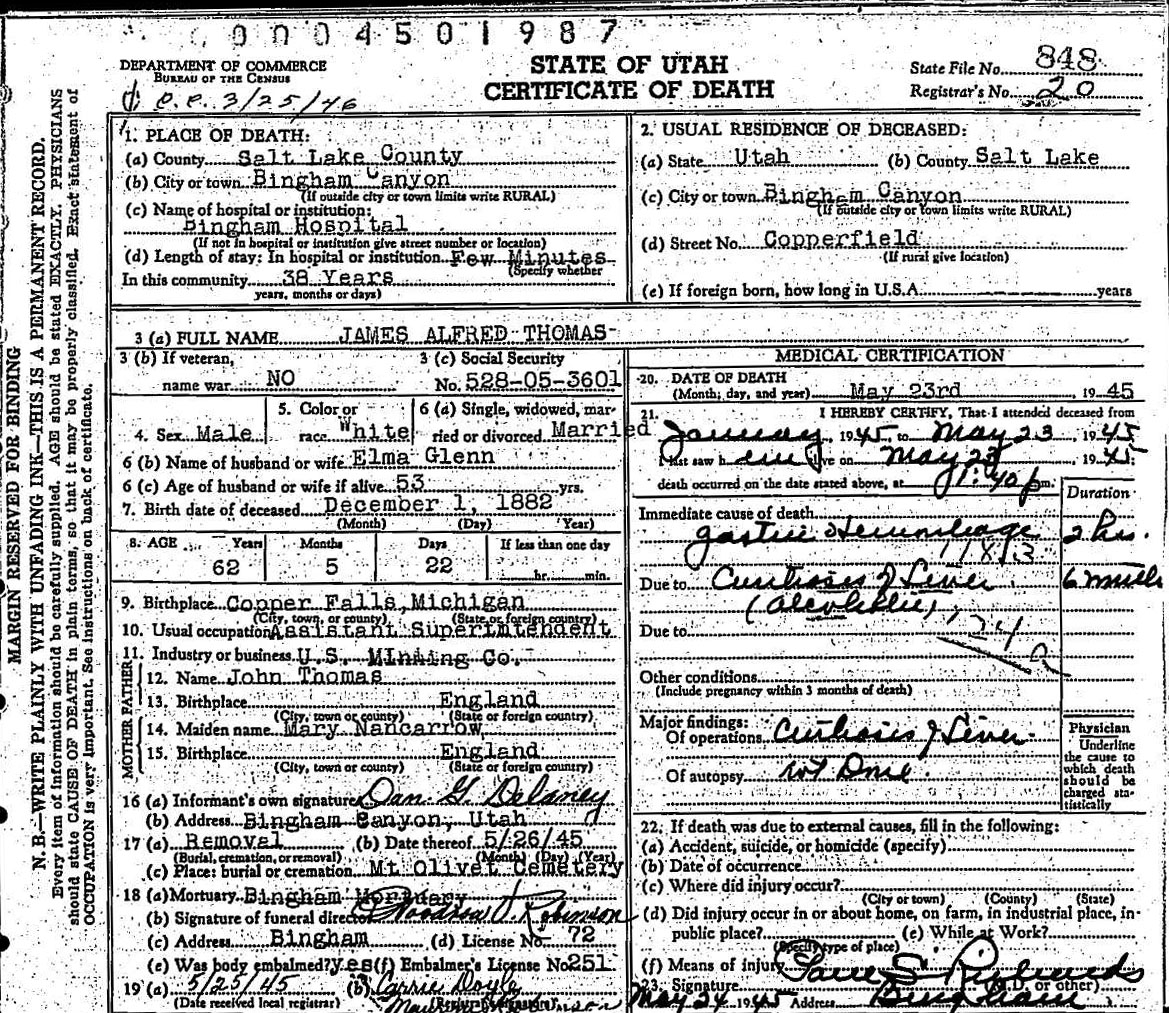 0004501987
DEPARTMENT OF COMMERCE
BUREAU OF THE CENSUS
STATE OF UTAH
CERTIFICATE OF DEATH
State File No. 848
Registrar's No. 20
3/25/46
1. PLACE OF DEATH:
(a) County Salt Lake County
(b) City or town Bingham Canyon
(If outside city or town limits write RURAL)
(c) Name of hospital or institution:
Bingham Hospital
(If not in hospital or institution give street number or location)
(d) Length of stay: In hospital or institution Few Minutes
(Specify whether
In this community 38 Years
years, months or days)
2. USUAL RESIDENCE OF DECEASED:
(a) State Utah (b) County Salt Lake
(c) City or town Bingham Canyon
(If outside city or town limits write RURAL)
(d) Street No. Copperfield
(If rural give location)
(e) If foreign born, how long in U.S.A. years
3 (a) FULL NAME JAMES ALFRED THOMAS
3 (b) If veteran,
name war NO
3 (c) Social Security
No. 528-05-3601
4. Sex Male
5. Color or
race White
6 (a) Single, widowed, mar-
ried or divorced Married
6 (b) Name of husband or wife Elma Glenn
6 (c) Age of husband or wife if alive 53 yrs.
7. Birth date of deceased December 1, 1882
(Month) (Day) (Year)
8. AGE Years Months Days If less than one day
62 5 22 hr. min.
9. Birthplace Copper Falls, Michigan
(City, town, or county) (State or foreign country)
10. Usual occupation Assistant Superintendent
11. Industry or business U.S. MInning Co.
FATHER
12. Name John Thomas
13. Birthplace England
(City, town or county) (State or foreign country)
MOTHER
14. Maiden name Mary Nancarrow
15. Birthplace England
(City, town or county) (State or foreign country)
16 (a) Informant's own signature Dan. G. Delaney
(b) Address Bingham Canyon, Utah
17 (a) Removal (b) Date thereof 5/26/45
(Burial, cremation, or removal) (Month) (Day) (Year)
(c) Place: burial or cremation Mt Olivet Cemetery
18 (a) Mortuary Bingham Mortuary
(b) Signature of funeral director Woodrow V. Robinson
(c) Address Bingham (d) License No. 72
(e) Was body embalmed? yes (f) Embalmer's License No. 251
19 (a) 5/25/45 (b) Carrie Doyle
(Date received local registrar) (Registrar's signature)
MEDICAL CERTIFICATION
20. DATE OF DEATH
(Month, day, and year) May 23rd, 1945
21. I HEREBY CERTIFY, That I attended deceased from
January, 1945, to May 23, 1945
I last saw h im alive on May 23, 1945;
death occurred on the date stated above, at 1:40 p m.
Duration
Immediate cause of death
Gastric Hemorrhage 2 hrs.
Due to Cirrhosis of Liver 6 months
(alcoholic) 124 a
Due to
Other conditions
(Include pregnancy within 3 months of death)
Major findings:
Of operations Cirrhosis of Liver
Of autopsy not Done.
Physician
Underline
the cause to
which death
should be
charged sta-
tistically
22. If death was due to external causes, fill in the following:
(a) Accident, suicide, or homicide (specify)
(b) Date of occurrence
(c) Where did injury occur?
(City or town) (County) (State)
(d) Did injury occur in or about home, on farm, in industrial place, in
public place? (e) While at Work?
(Specify type of place)
(f) Means of injury
23. Signature Paul S. Richards
(M.D. or other)
May 24 1945 Address Bingham
MARGIN RESERVED FOR BINDING
N. B.—WRITE PLAINLY WITH UNFADING INK—THIS IS A PERMANENT RECORD.
Every item of information should be carefully supplied. AGE should be stated EXACTLY. PHYSICIANS
should state CAUSE OF DEATH in plain terms, so that it may be properly classified. Exact statement of
OCCUPATION is very important. See instructions on back of certificate.